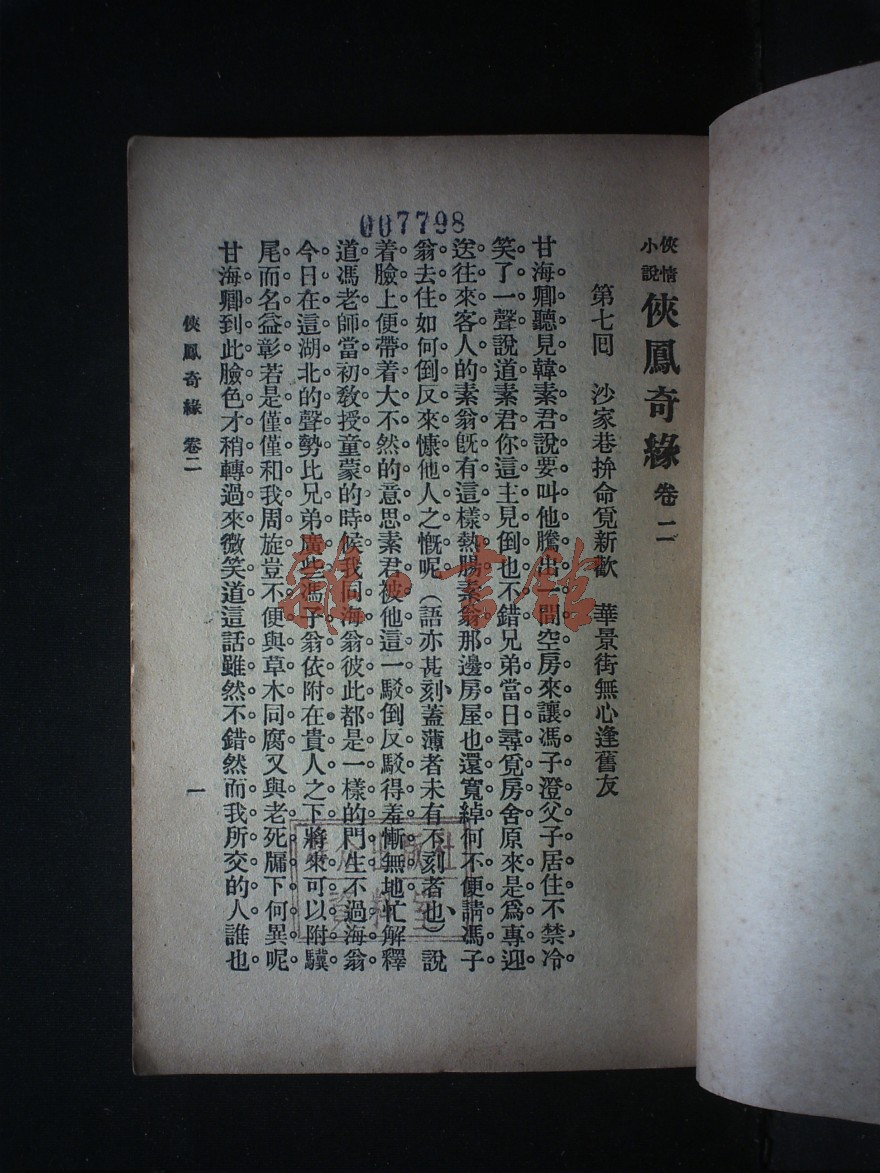 007798
俠情
小說
俠鳳奇緣 卷二
第七回 沙家巷拚命覓新歡 華景街無心逢舊友
甘海卿聽見韓素君說要叫他騰出一間空房來讓馮子澄父子居住不禁冷
笑了一聲說道素君你這主見倒也不錯兄弟當日尋覓房舍原來是爲專迎
送往來客人的素翁既有這樣熱腸素翁那邊房屋也還寬綽何不便請馮子
翁去住如何倒反來慷他人之慨呢(語亦甚刻蓋薄者未有不刻者也)說
着臉上便帶着大不然的意思素君被他這一駁倒反駁得羞慚無地忙解釋
道馮老師當初敎授童蒙的時候我同海翁彼此都是一樣的門生不過海翁
今日在這湖北的聲勢比兄弟廣些馮子翁依附在貴人之下將來可以附驥
尾而名益彰若是僅僅和我周旋豈不便與草木同腐又與老死牖下何異呢
甘海卿到此臉色才稍轉過來微笑道這話雖然不錯然而我所交的人誰也
俠鳳奇緣 卷二
一
雜·書館